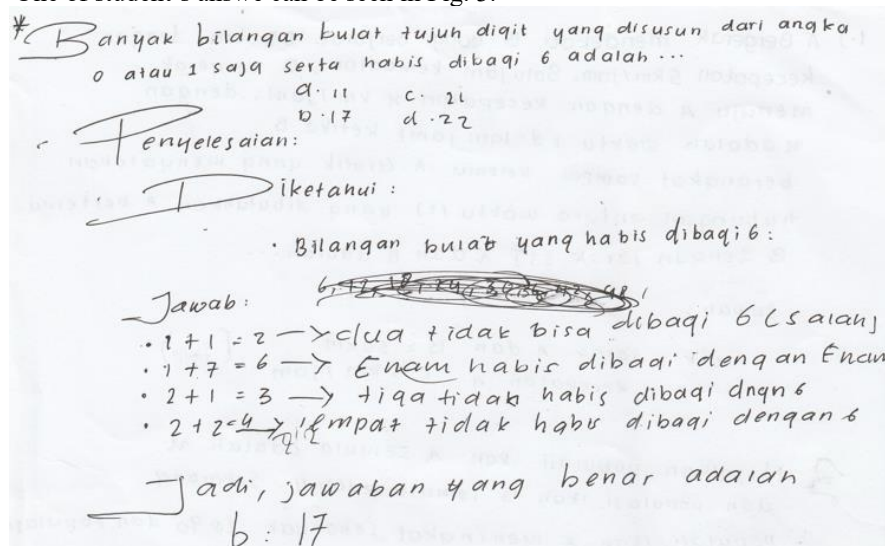 * Banyak bilangan bulat tujuh digit yang disusun dari angka
0 atau 1 saja serta habis dibagi 6 adalah ...
a. 11 c. 21
b. 17 d. 22
Penyelesaian:
Diketahui :
• Bilangan bulat yang habis dibagi 6:
Jawab:
• 1 + 1 = 2 → dua tidak bisa dibagi 6 (salah)
• 1 + 7 = 6 → Enam habis dibagi dengan Enam
• 2 + 1 = 3 → tiga tidak habis dibagi dngn 6
• 2 + 2 = 4 → Empat tidak habis dibagi dengan 6
Jadi, jawaban yang benar adalah
b : 17